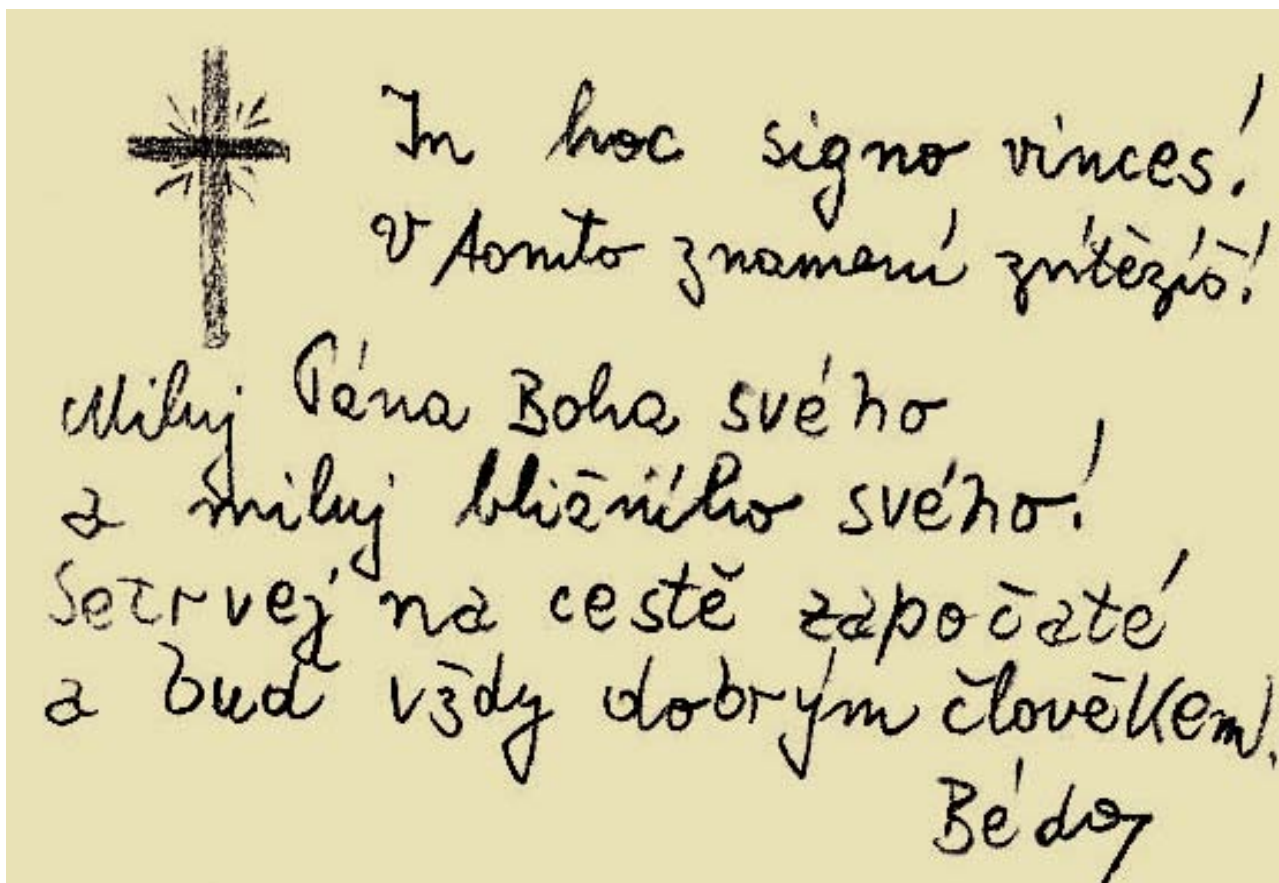 In hoc signo vinces!
V tomto znamení zvítězíš!
Miluj Pána Boha svého
a miluj bližního svého!
Setrvej na cestě započaté
a buď vždy dobrým člověkem.
Béda